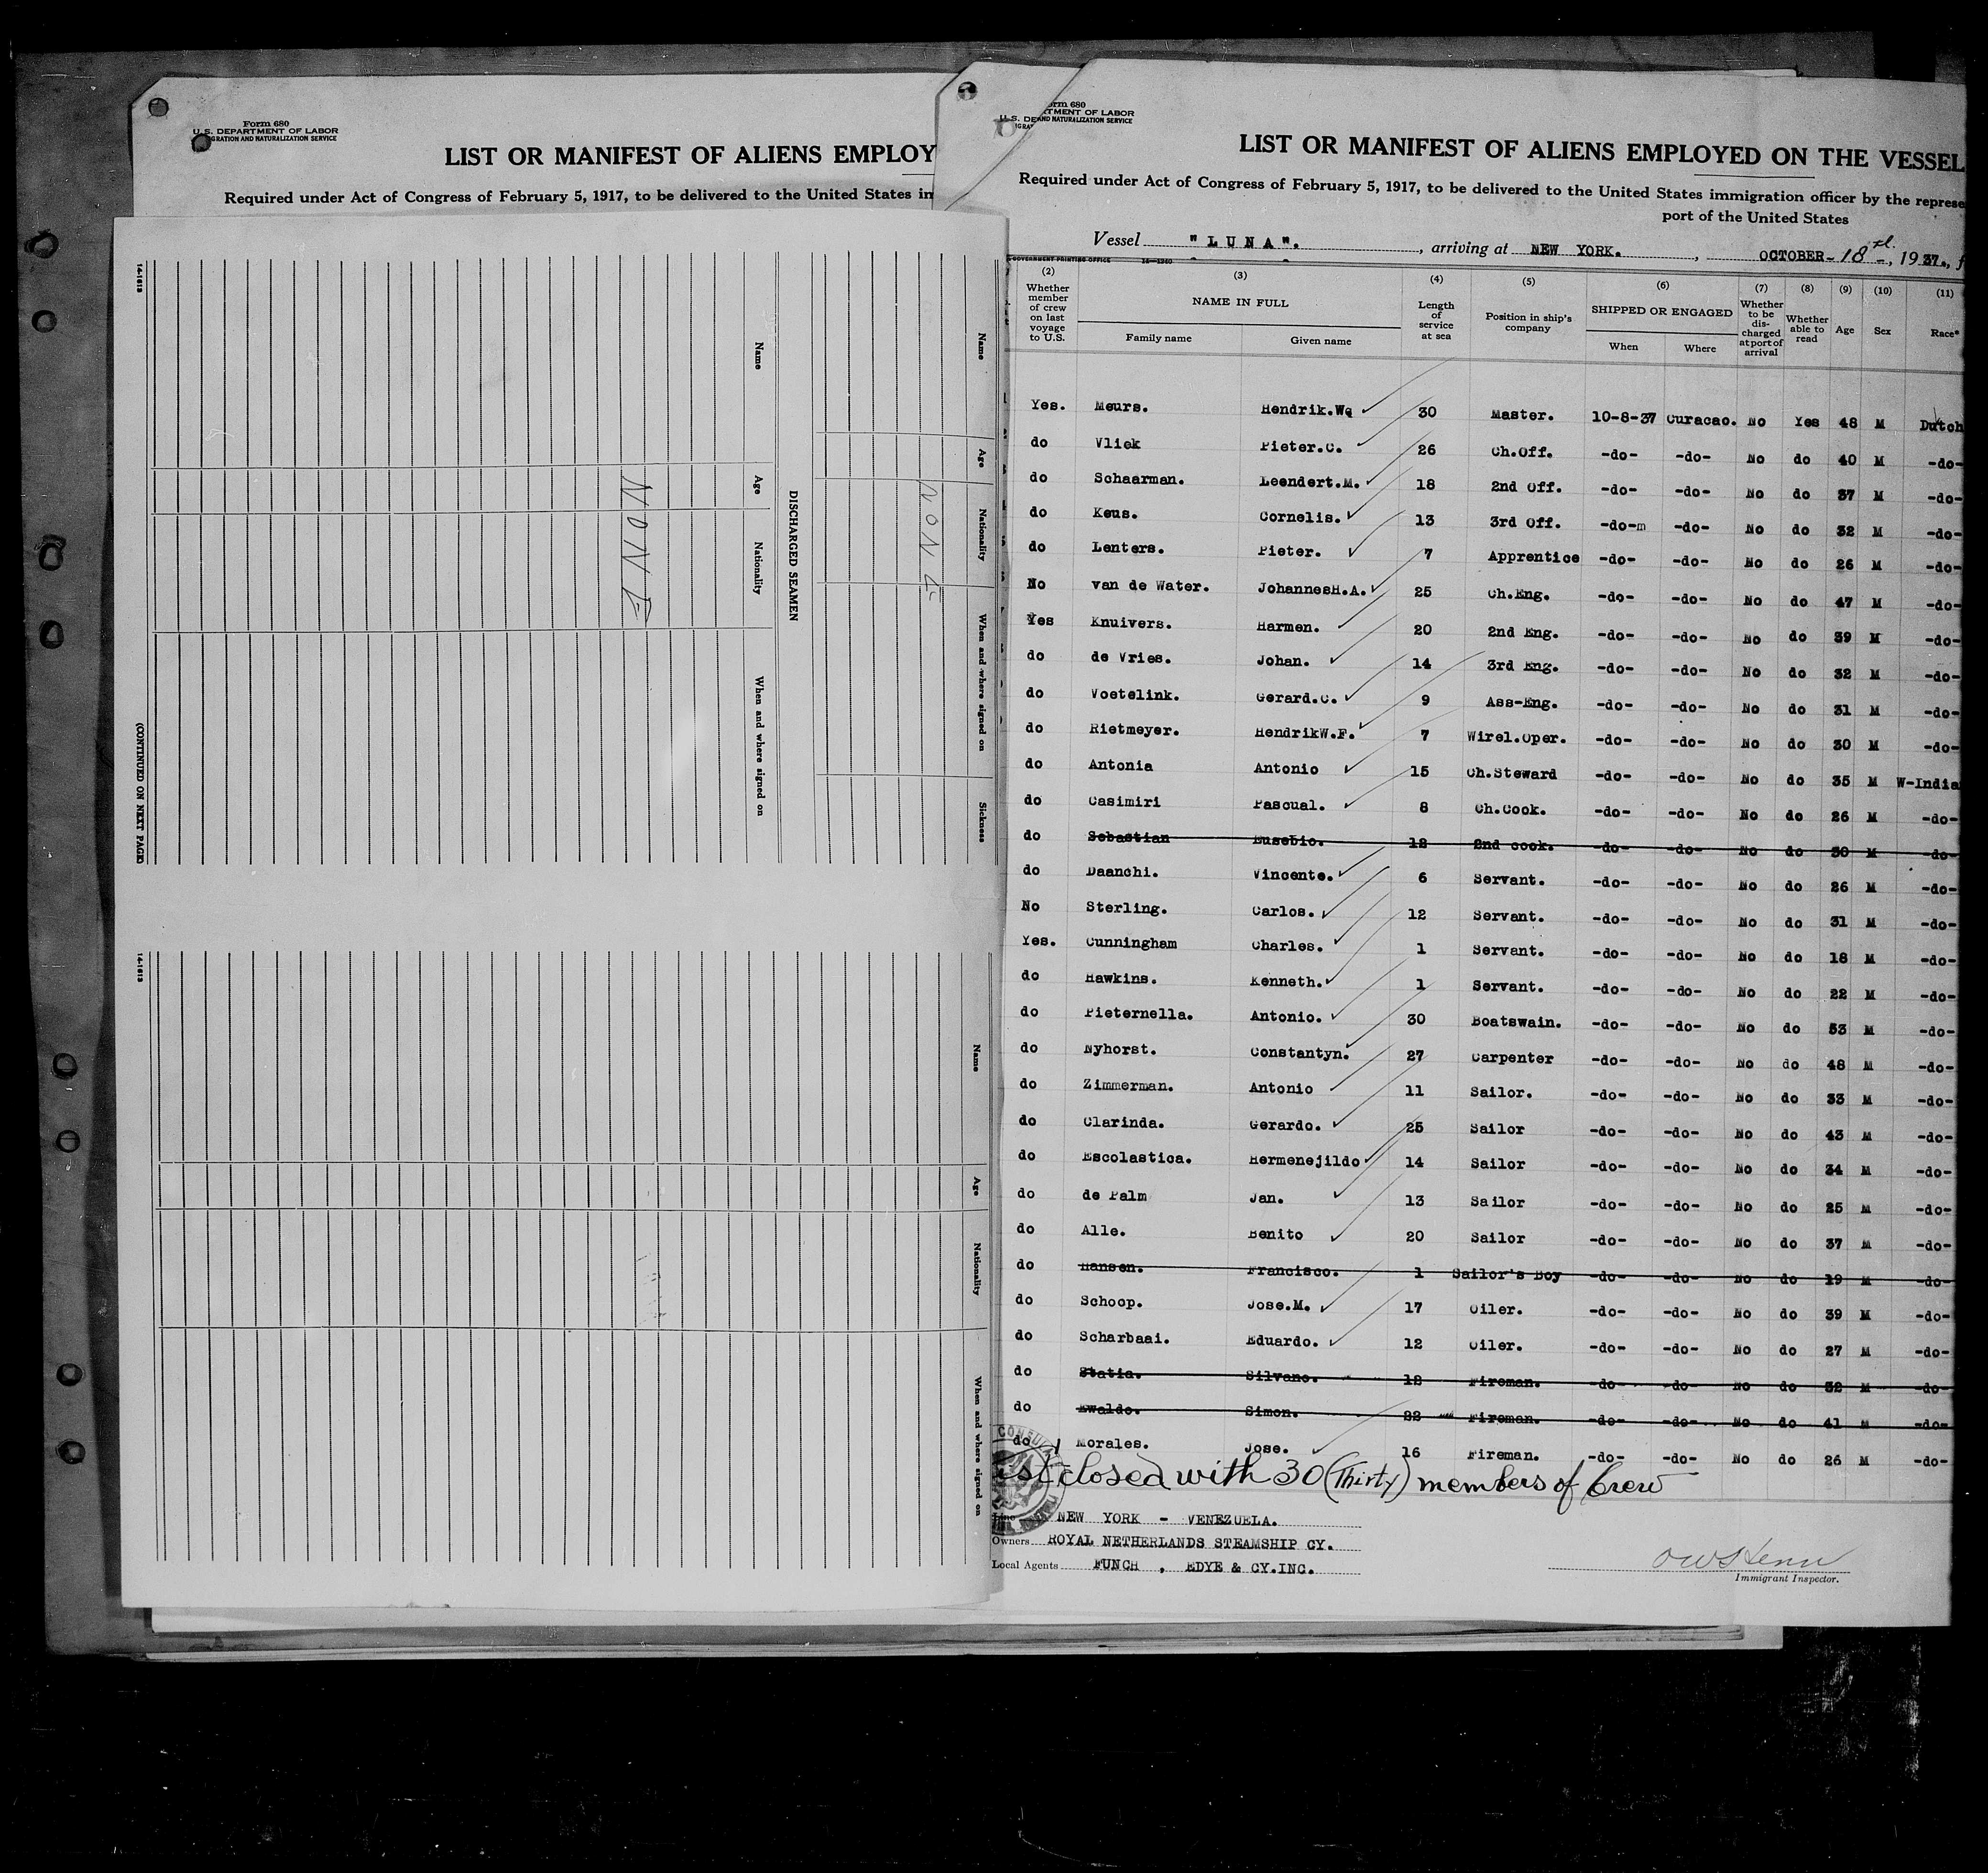 Form 680
U. S. DEPARTMENT OF LABOR
GRATION AND NATURALIZATION SERVICE
LIST OR MANIFEST OF ALIENS EMPLOY
Required under Act of Congress of February 5, 1917, to be delivered to the United States in
14-1613
Name
Age
Nationality
When and where signed on
Sickness
NONE
DISCHARGED SEAMEN
Name
Age
Nationality
When and where signed on
NONE
(CONTINUED ON NEXT PAGE)
14-1613
Name
Age
Nationality
When and where signed on
orm 680
U. S. DE RTMENT OF LABOR
IGRAT AND NATURALIZATION SERVICE
LIST OR MANIFEST OF ALIENS EMPLOYED ON THE VESSEL
Required under Act of Congress of February 5, 1917, to be delivered to the United States immigration officer by the represe
port of the United States
Vessel "LUNA"., arriving at NEW YORK., OCTOBER-18th-, 1937., f
GOVERNMENT PRINTING OFFICE
(2) (3) (4) (5) (6) (7) (8) (9) (10) (11)
Whether member of crew on last voyage to U.S. NAME IN FULL Length of service at sea Position in ship's company SHIPPED OR ENGAGED Whether to be discharged at port of arrival Whether able to read Age Sex Race*
Family name Given name When Where
Yes. Meurs. Hendrik.Wq 30 Master. 10-8-37 Curacao. No Yes 48 M Dutch
do Vliek Pieter.C. 26 Ch.Off. -do- -do- No do 40 M -do-
do Schaarman. Leendert.M. 18 2nd Off. -do- -do- No do 37 M -do-
do Keus. Cornelis. 13 3rd Off. -do-m -do- No do 32 M -do-
do Lenters. Pieter. 7 Apprentice -do- -do- No do 26 M -do-
No van de Water. JohannesH.A. 25 Ch.Eng. -do- -do- No do 47 M -do-
Yes Knuivers. Harmen. 20 2nd Eng. -do- -do- No do 39 M -do-
do de Vries. Johan. 14 3rd Eng. -do- -do- No do 32 M -do-
do Voetelink. Gerard.C. 9 Ass-Eng. -do- -do- No do 31 M -do-
do Rietmeyer. HendrikW.F. 7 Wirel.Oper. -do- -do- No do 30 M -do-
do Antonia Antonio 15 Ch.Steward -do- -do- No do 35 M W-India
do Casimiri Pascual. 8 Ch.Cook. -do- -do- No do 26 M -do-
do Sebastian Eusebio. 12 2nd cook. -do- -do- No do 30 M -do-
do Daanchi. Vincente. 6 Servant. -do- -do- No do 26 M -do-
No Sterling. Carlos. 12 Servant. -do- -do- No do 31 M -do-
Yes. Cunningham Charles. 1 Servant. -do- -do- No do 18 M -do-
do Hawkins. Kenneth. 1 Servant. -do- -do- No do 22 M -do-
do Pieternella. Antonio. 30 Boatswain. -do- -do- No do 53 M -do-
do Nyhorst. Constantyn. 27 Carpenter -do- -do- No do 48 M -do-
do Zimmerman. Antonio 11 Sailor. -do- -do- No do 33 M -do-
do Clarinda. Gerardo. 25 Sailor -do- -do- No do 43 M -do-
do Escolastica. Hermenejildo 14 Sailor -do- -do- No do 34 M -do-
do de Palm Jan. 13 Sailor -do- -do- No do 25 M -do-
do Alle. Benito 20 Sailor -do- -do- No do 37 M -do-
do Hansen. Francisco. 1 Sailor's Boy -do- -do- No do 19 M -do-
do Schoop. Jose.M. 17 Oiler. -do- -do- No do 39 M -do-
do Scharbaai. Eduardo. 12 Oiler. -do- -do- No do 27 M -do-
do Statia. Silvano. 12 Fireman. -do- -do- No do 32 M -do-
do Ewaldo. Simon. 22 Fireman. -do- -do- No do 41 M -do-
do Morales. Jose. 16 Fireman. -do- -do- No do 26 M -do-
ist closed with 30 (Thirty) members of Crew
Line NEW YORK - VENEZUELA.
Owners ROYAL NETHERLANDS STEAMSHIP CY.
Local Agents FUNCH, EDYE & CY.INC.
Immigrant Inspector.